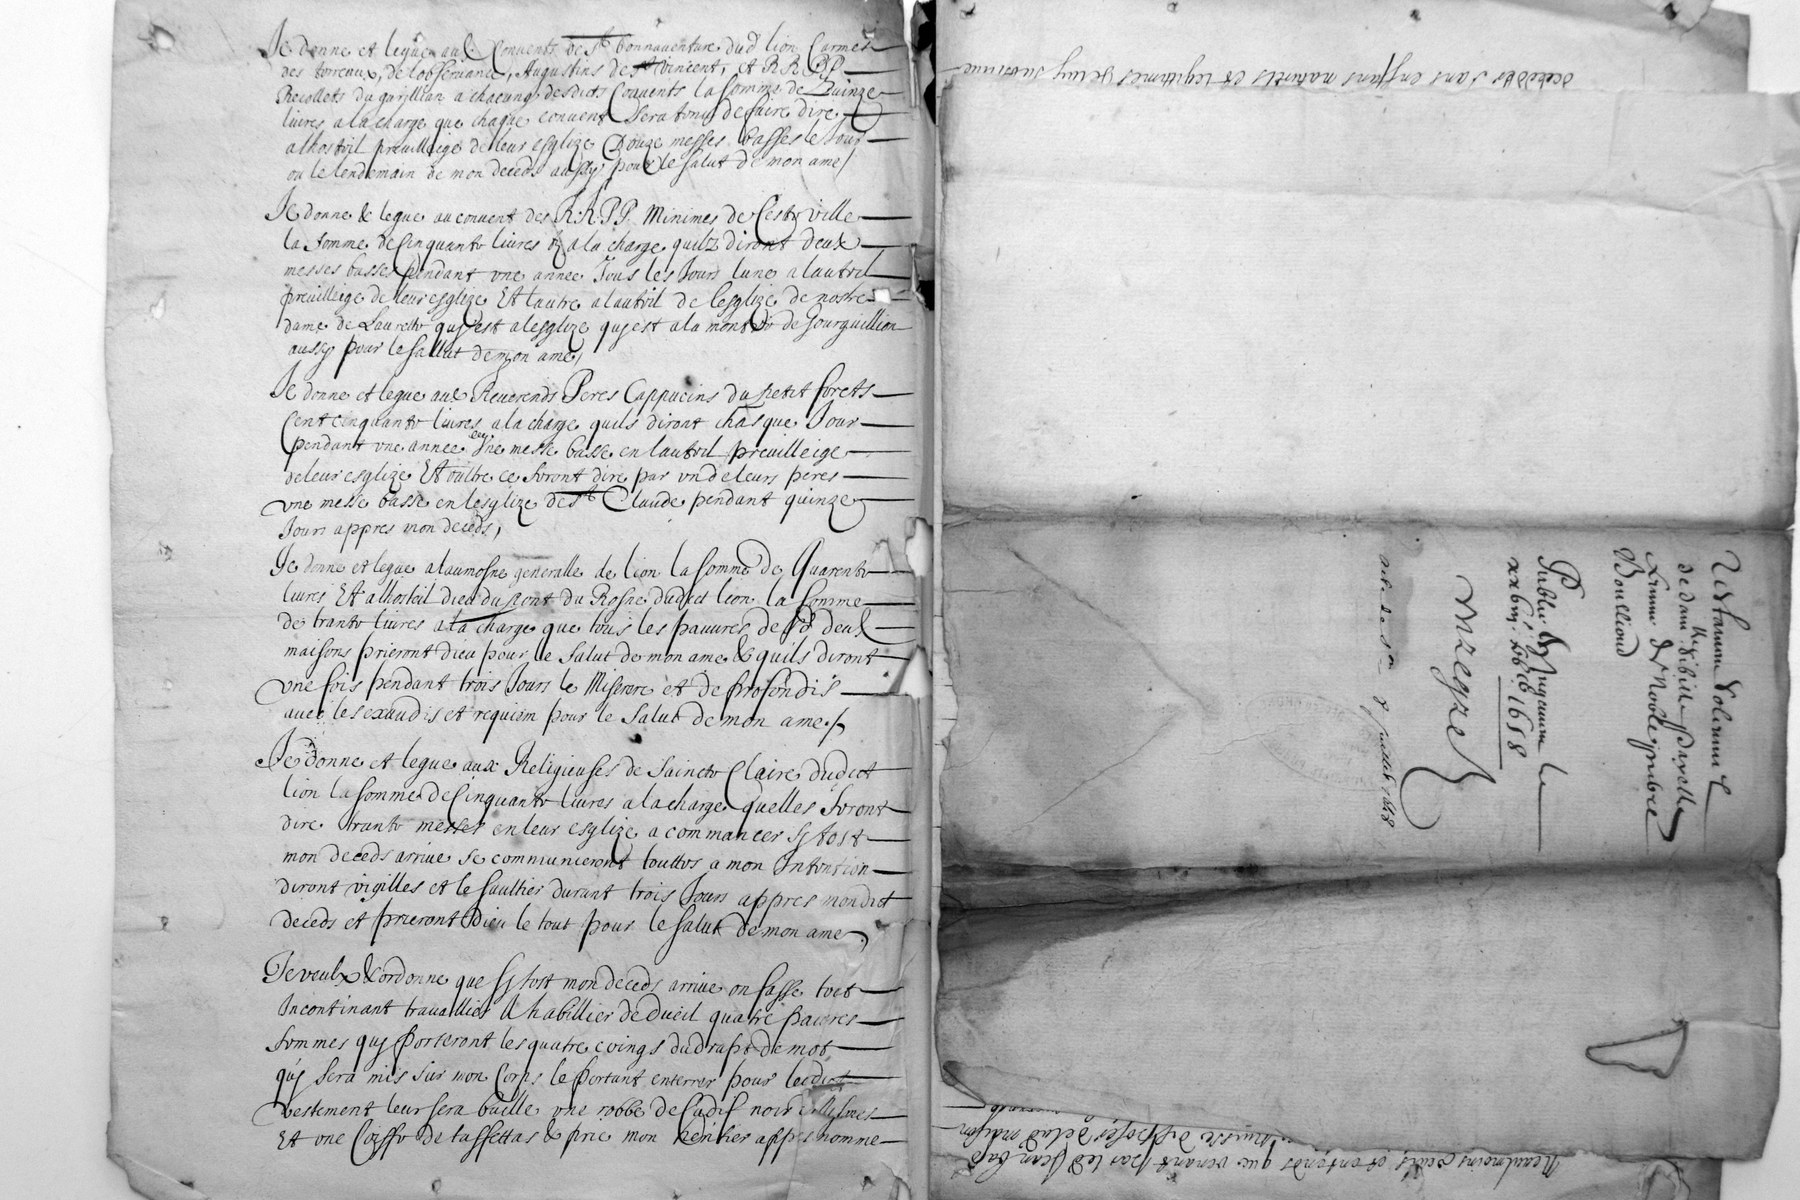 Je donne et legue aux Convents de St bonnaventure dud lion Carmes
des terreaux, de lobservance, Augustins de St vincent, et R R P P
Recollets du gajllian a chacung desdicts Couvents la somme de Quinze
livres a la charge que chaque convent sera tenu de faire dire
alhostel previlleige de leur esglize Douze messes basses le Jour
ou le lendemain de mon deceds aussy pour le salut de mon ame /
Je donne & legue au convent des R. R. P P. Minimes de Ceste ville
la somme de Cinquante livres a la charge quilz diront deux
messes basses pendant une annee Tous les Jours lune a lautel
previlleige de leur esglize Et lautre a lautel de lesglize de nostre
dame de Laurette quj est a lesglize quj est a la montee de Gourguillion
aussy pour le sallut de mon ame,
Je donne et legue aux Reverends Peres Cappucins du petit forets
Cent cinquante livres a la charge quils diront chasque Jour
pendant une annee une messe basse en lautel previlleige
de leur esglize Et oultre ce feront dire par un de leurs peres
une messe basse en lesglize de St Claude pendant quinze
Jours appres mon deceds,
Je donne et legue a laumosne generalle de lion la somme de Quarente
livres Et alhosteil dieu du pont du Rosne dudict lion la somme
de trante livres a la charge que tous les pauvres desd deux
maisons prieront dieu pour le salut de mon ame & quils diront
une fois pendant trois Jours le Miserere et de profondis
avec les exaudis et requiem pour le salut de mon ame. /
Je donne et legue aux Religieuses de Saincte Claire dudict
lion la somme de Cinquante livres a la charge quelles feront
dire trante messes en leur esglize a commancer sy tost
mon deceds arrive se communieront touttes a mon Intention
diront vigilles et le saultier durant trois Jours appres mondict
deceds et prieront Dieu le tout pour le salut de mon ame,
Je veulx & ordonne que sy tost mon deceds arrive on fasse tost
Incontinant travallier & habillier de dueil quatre pauvres
femmes quj porteront les quatre coings du drapt de mort
quj sera mis sur mon Corps le portant enterrer pour ledict
vestement leur sera baille une robbe de Cadis noir
Et une Coiffe de taffettas & prie mon heritier appres nomme
decedes sans enffans naturels et legitimes
Testamentum solemne
de dam lle sibille
femme de Noble
Boullioud
Publié & Insignué le
1658
juillet 1658
Neanlmoings et entends que venant par led Jean bap
de lad maison